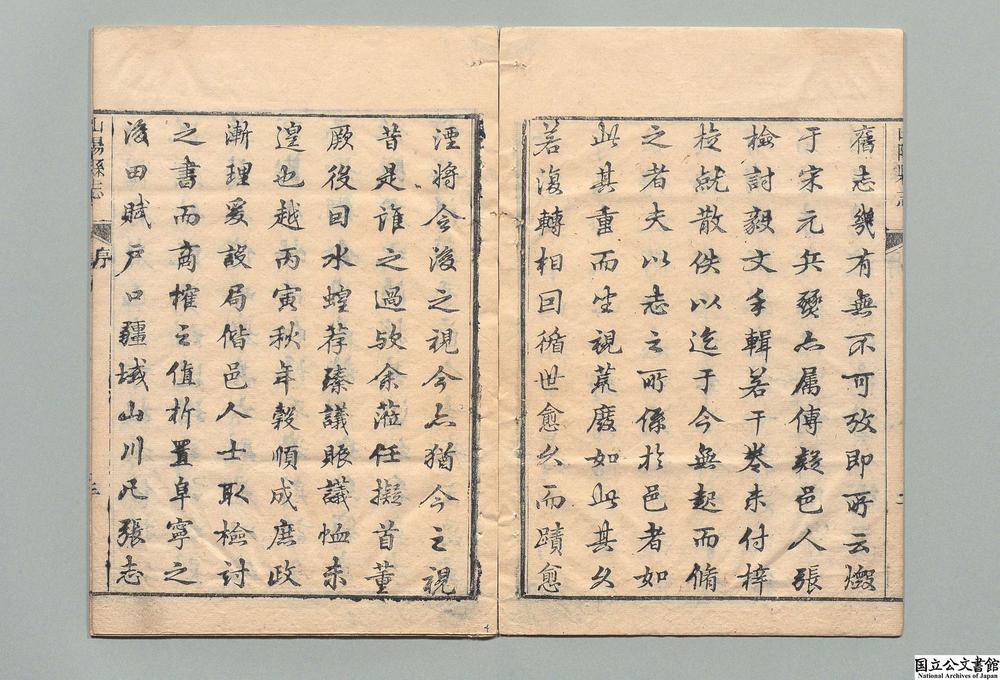 舊志幾有無不可攷即所云燬
于宋元兵燹亦属傳疑邑人張
檢討毅文手輯若干卷未付梓
校就散佚以迄于今無起而脩
之者夫以志之所係於邑者如
此其重而坐視荒廢如此其久
若復轉相因循世愈久而蹟愈
湮將令後之視今亦猶今之視
昔是誰之過歟余蒞任擬首董
厥後因水蝗荐臻議賑議恤未
遑也越丙寅秋年穀順成庶政
漸理爰設局偕邑人士取檢討
之書而商榷之值析置阜寧之
後田賦戶口疆域山川凡張志
山陽縣志 序
国立公文書館
National Archives of Japan